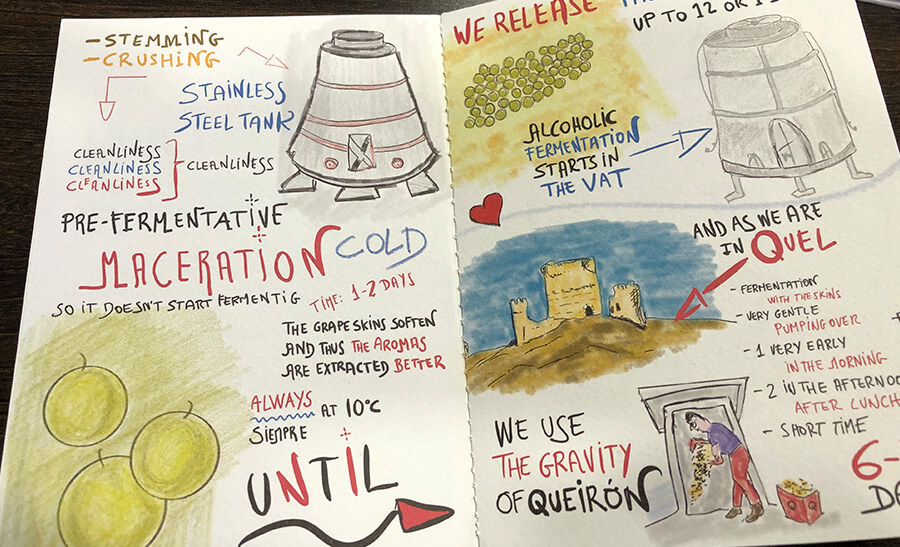 -STEMMING
-CRUSHING
STAINLESS
STEEL TANK
CLEANLINESS
CLEANLINESS
CLEANLINESS
CLEANLINESS
PRE-FERMENTATIVE
MACERATION
COLD
SO IT DOESN'T START FERMENTIG
TIME: 1-2 DAYS
THE GRAPE SKINS SOFTEN
AND THUS THE AROMAS
ARE EXTRACTED BETTER
ALWAYS AT 10°C
SIEMPRE
UNTIL
WE RELEASE
UP TO 12 OR
ALCOHOLIC
FERMENTATION
STARTS IN
THE VAT
AND AS WE ARE
IN QUEL
- FERMENTATION
WITH THE SKINS
- VERY GENTLE
PUMPING OVER
- 1 VERY EARLY
IN THE MORNING
- 2 IN THE AFTERNOO
AFTER LUNCH
- SHORT TIME
WE USE
THE GRAVITY
OF QUEIRÓN
6-